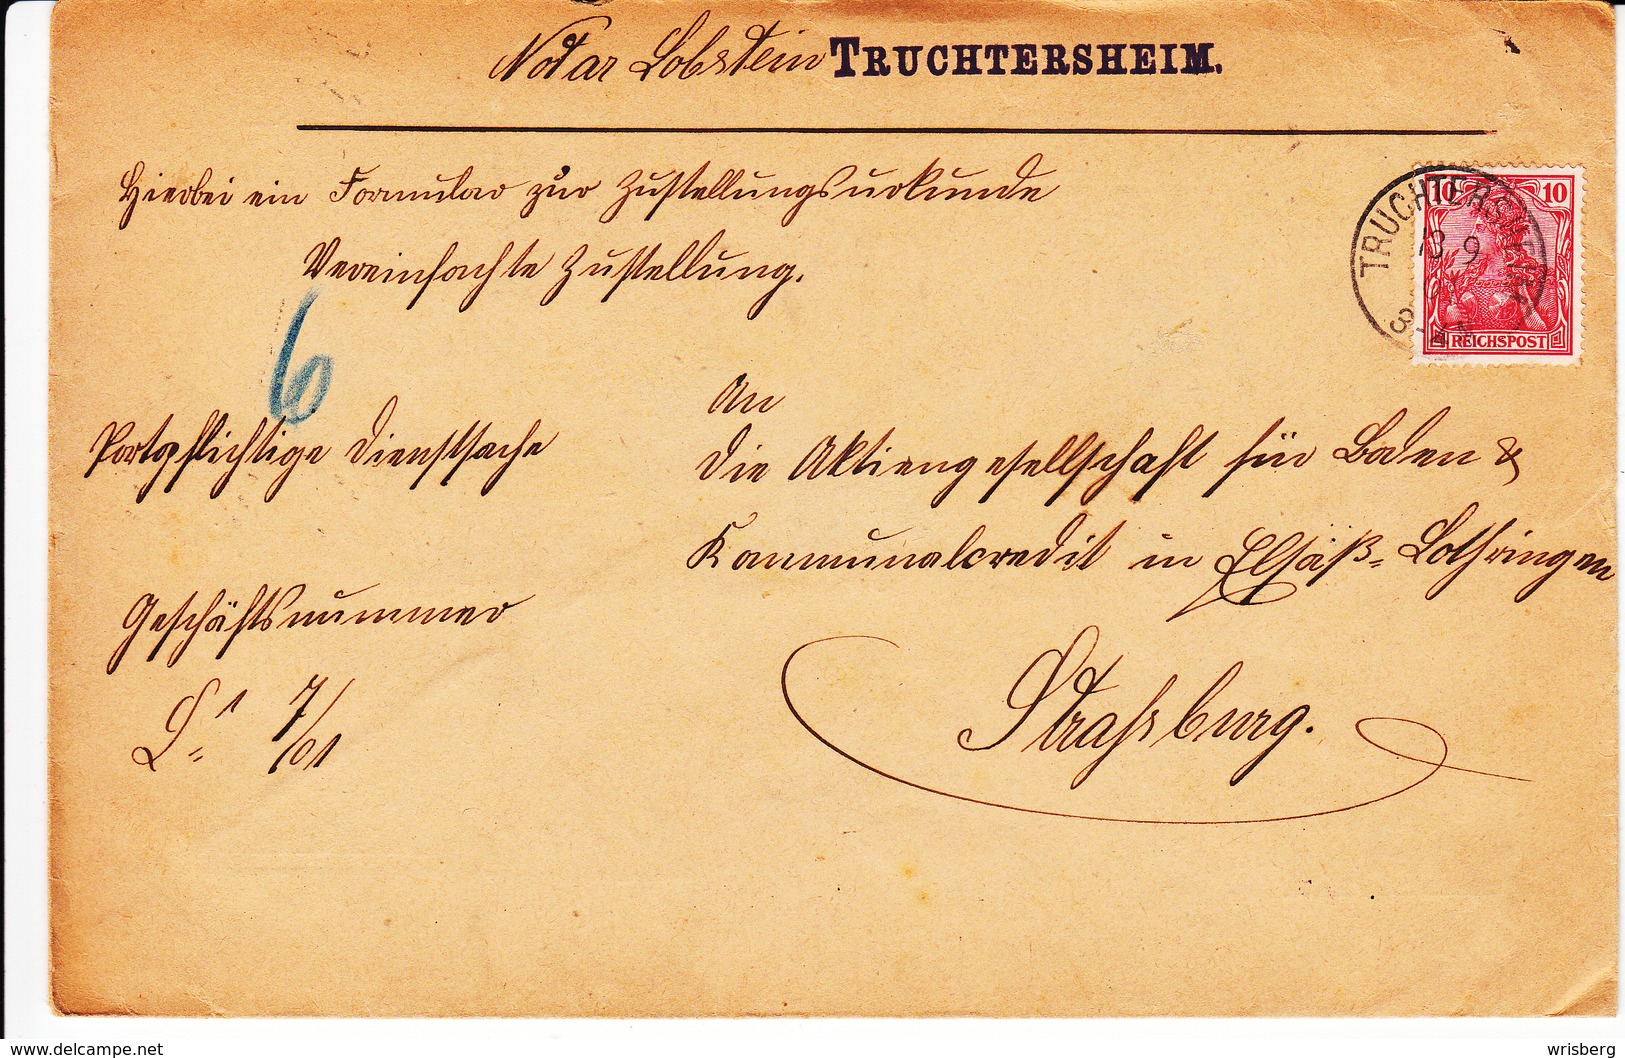 Notar Lobstein TRUCHTERSHEIM.
Hierbei ein Formular zur Zustellungsurkunde
Vereinfachte Zustellung.
10 10
TRUCHTERSHEIM
13 9
REICHSPOST
6
An
Portopflichtige Dienstsache
die Aktiengesellschaft für Boden &
Kommunalcredit in Elsaß-Lothringen
Geschäftsnummer
Strassburg.
L. 1 7/01
delcampe.net
wrisberg